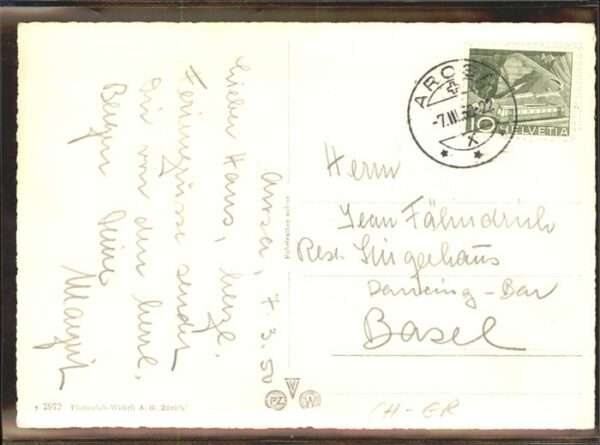 Arosa, 7.3.50
Lieber Hans, herzl.
Feriengrüsse sendet
Dir von den herrl.
Bergen Deine
Margrit
AROSA
-7.III.50-22
X
10 HELVETIA
Herrn
Jean Fähndrich
Rest. Singerhaus
Dancing-Bar
Basel
7977 Photoglob-Wehrli A. G. Zürich
PZ W
CH-GR